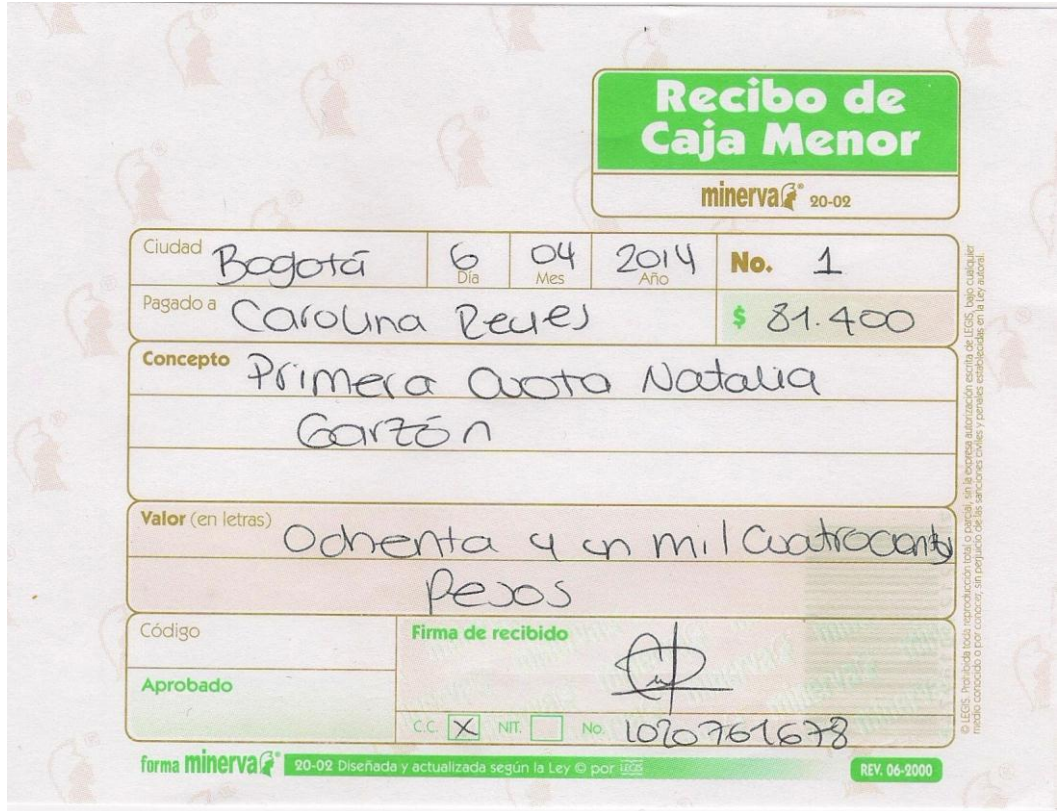 Recibo de
Caja Menor
minerva® 20-02
Ciudad Bogotá 6 Día 04 Mes 2014 Año No. 1
Pagado a Carolina Reyes $ 81.400
Concepto Primera Cuota Natalia
Garzón
Valor (en letras) Ochenta y un mil Cuatrocientos
Pesos
Código
Firma de recibido
Aprobado
C.C. X NIT. No. 1020761678
forma minerva® 20-02 Diseñada y actualizada según la Ley © por LEGIS REV. 06-2000
© LEGIS. Prohibida toda reproducción total o parcial, sin la expresa autorización escrita de LEGIS, bajo cualquier
medio conocido o por conocer, sin perjuicio de las sanciones civiles y penales establecidas en la Ley autoral.